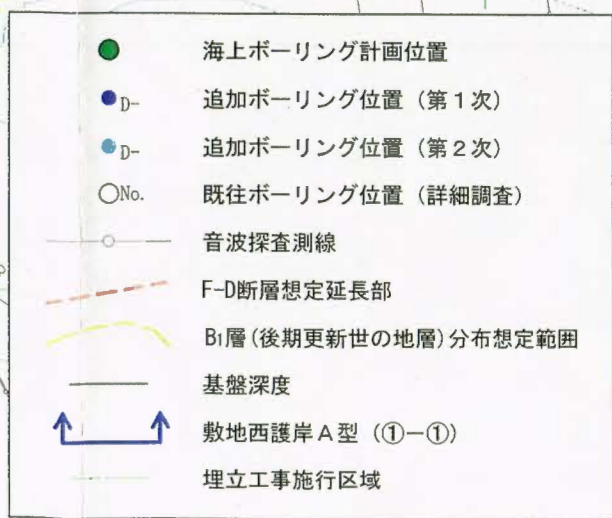 海上ボーリング計画位置
D- 追加ボーリング位置（第１次）
D- 追加ボーリング位置（第２次）
No. 既往ボーリング位置（詳細調査）
音波探査測線
F-D断層想定延長部
B1層(後期更新世の地層)分布想定範囲
基盤深度
敷地西護岸Ａ型（①ー①）
埋立工事施行区域